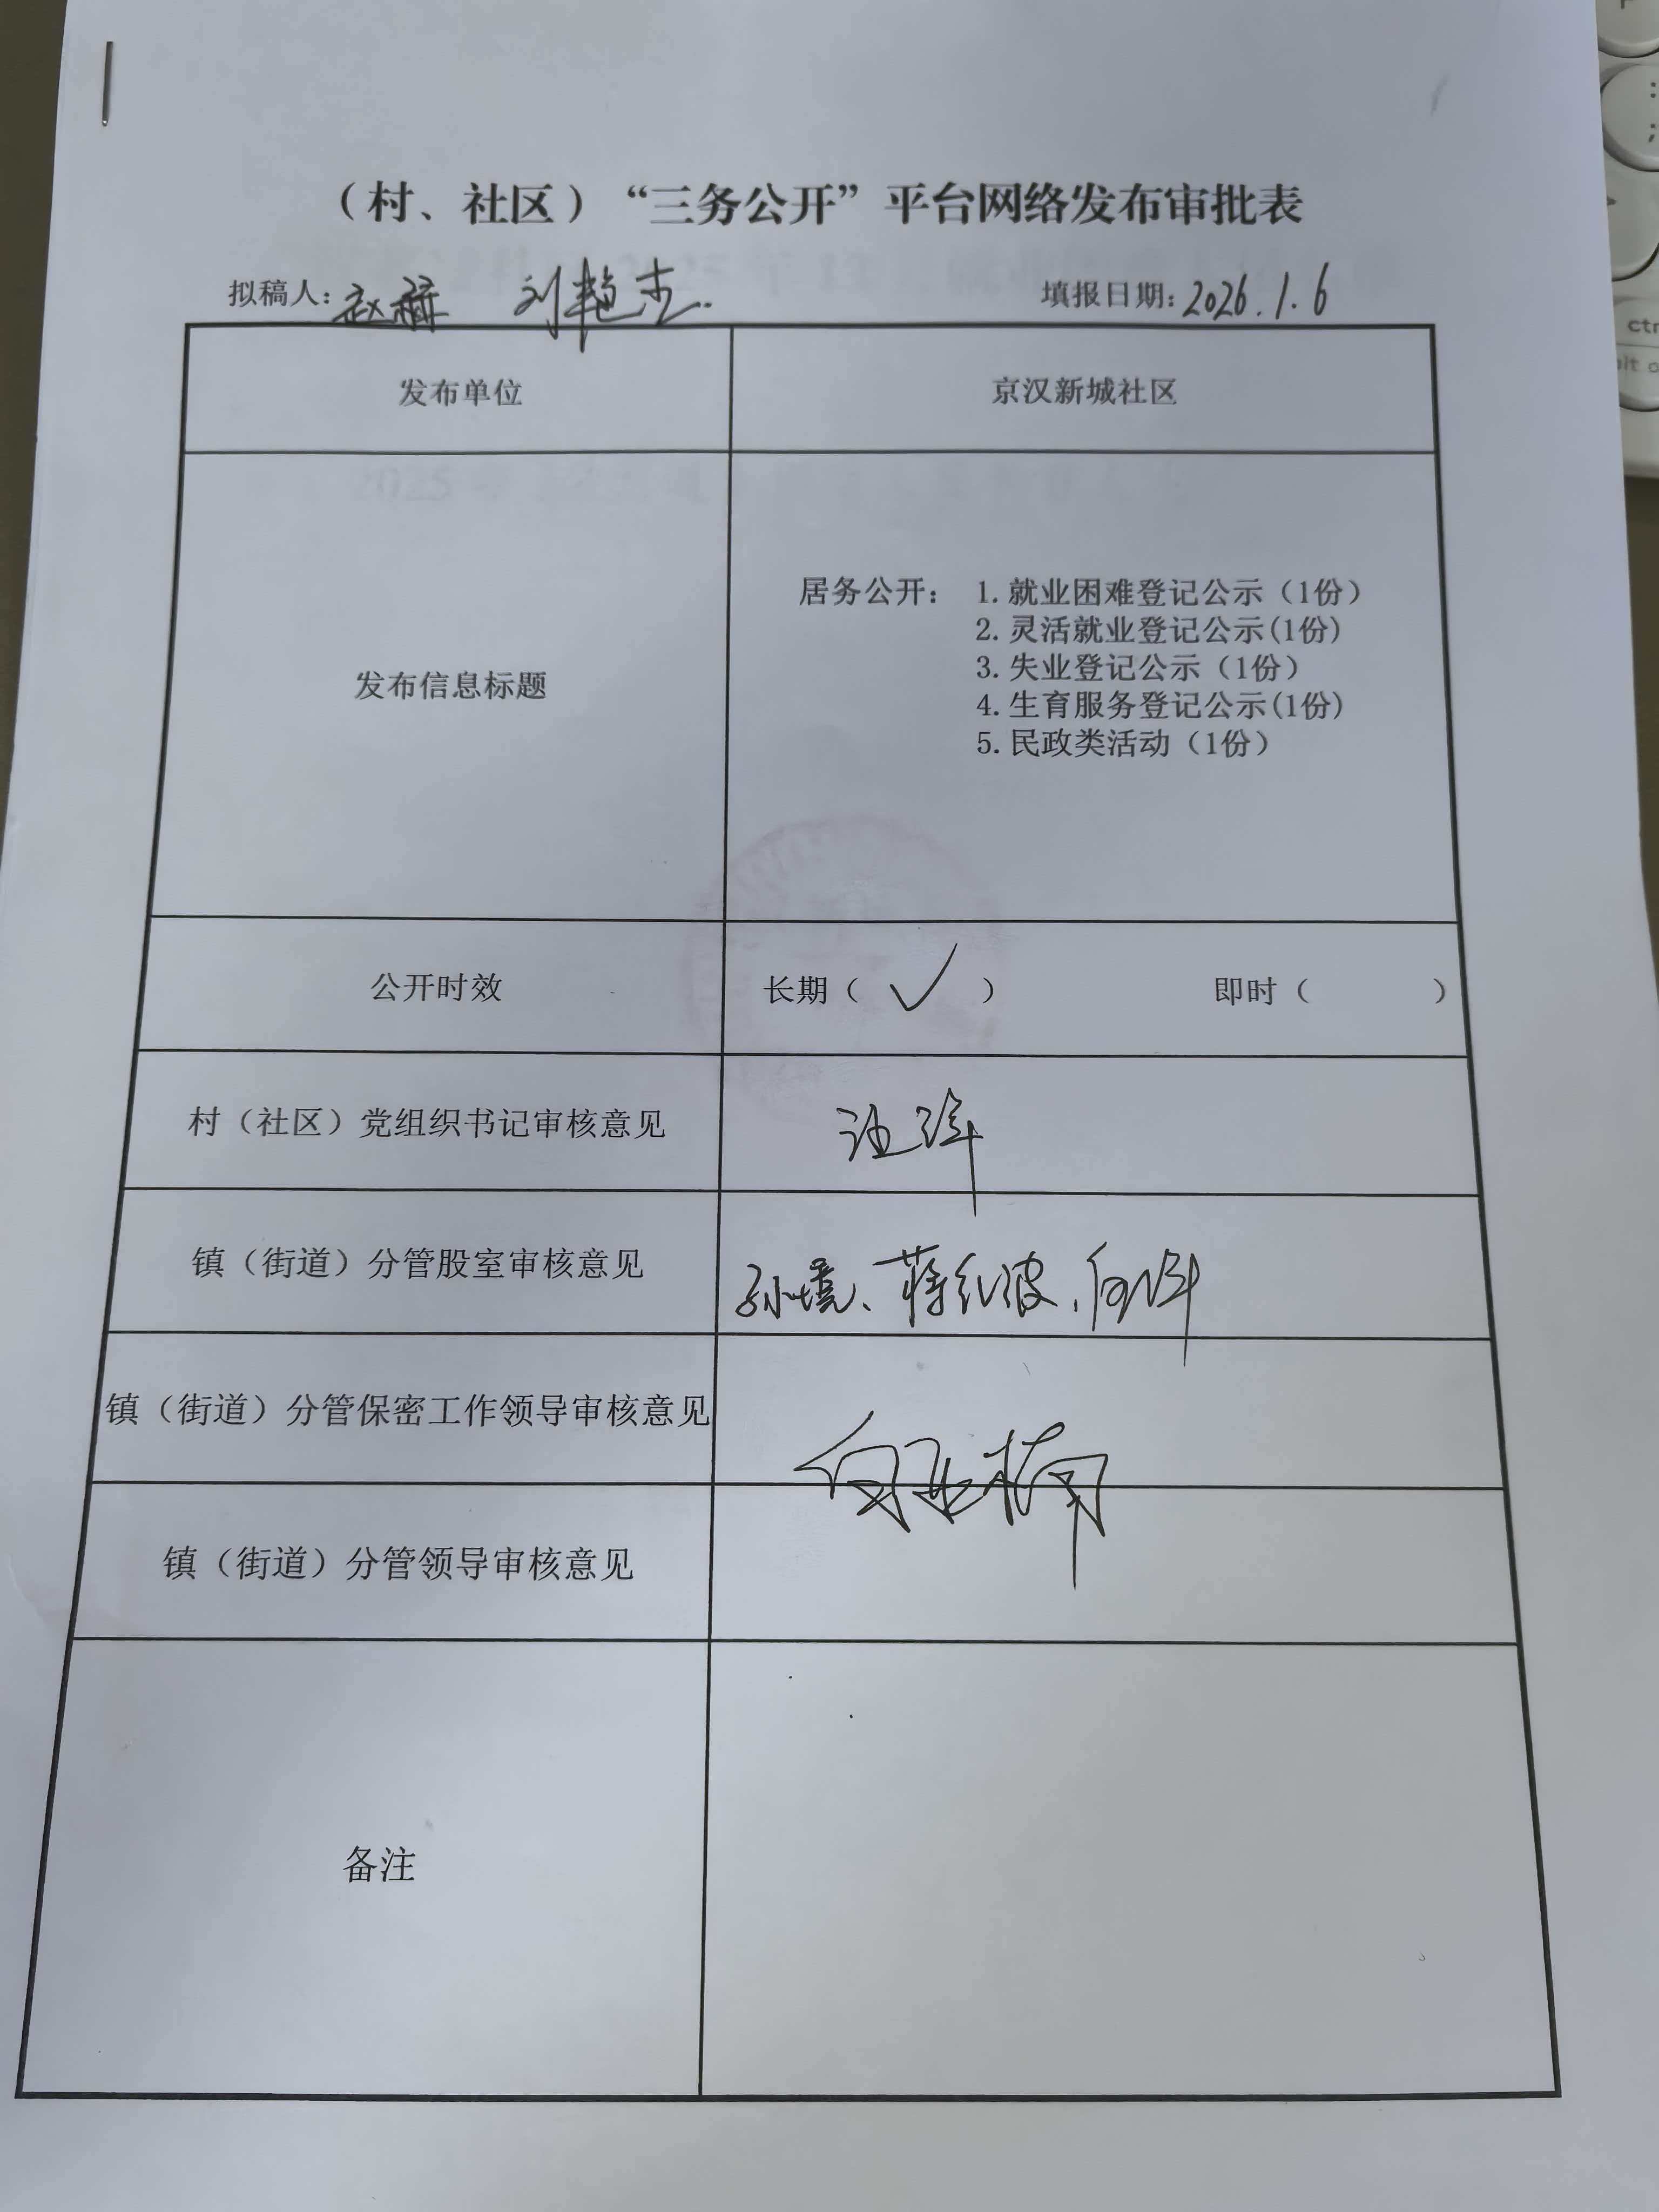 （村、社区）“三务公开”平台网络发布审批表
拟稿人：赵 刘艳杰 填报日期：2026.1.6
发布单位 京汉新城社区
发布信息标题
居务公开： 1.就业困难登记公示（1份）
2.灵活就业登记公示(1份)
3.失业登记公示（1份）
4.生育服务登记公示(1份)
5.民政类活动（1份）
公开时效 长期（ ✓ ） 即时（ ）
村（社区）党组织书记审核意见
镇（街道）分管股室审核意见 孙境、蒋红波、
镇（街道）分管保密工作领导审核意见
向亚楠
镇（街道）分管领导审核意见
备注
ctr